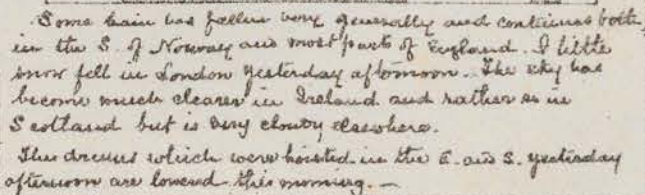 Some rain has fallen very generally and continues both
in the S. of Norway and most parts of England. A little
snow fell in London yesterday afternoon. The sky has
become much clearer in Ireland and rather so in
Scotland but is very cloudy elsewhere.
The drums which were hoisted in the E. and S. yesterday
afternoon are lowered this morning. —